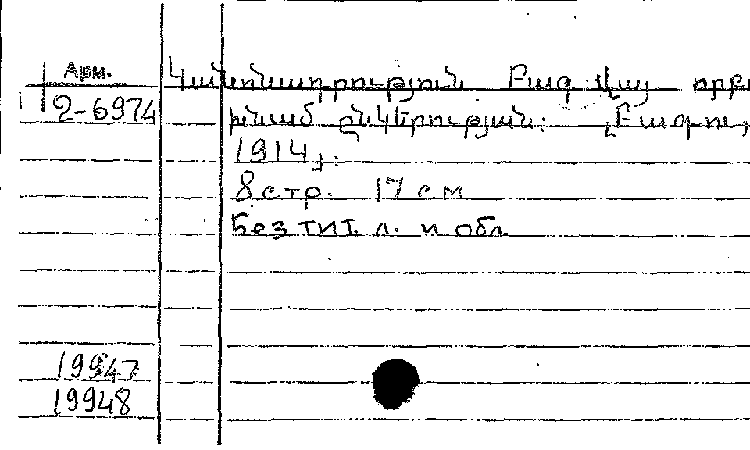 Арм.
2-6974
Կանոնադրություն Բագ վայ որբ
խնամ ընկերության: Բագու,
1914թ.
8 стр. 17 см
Без тит. л. и обл
19947
19948